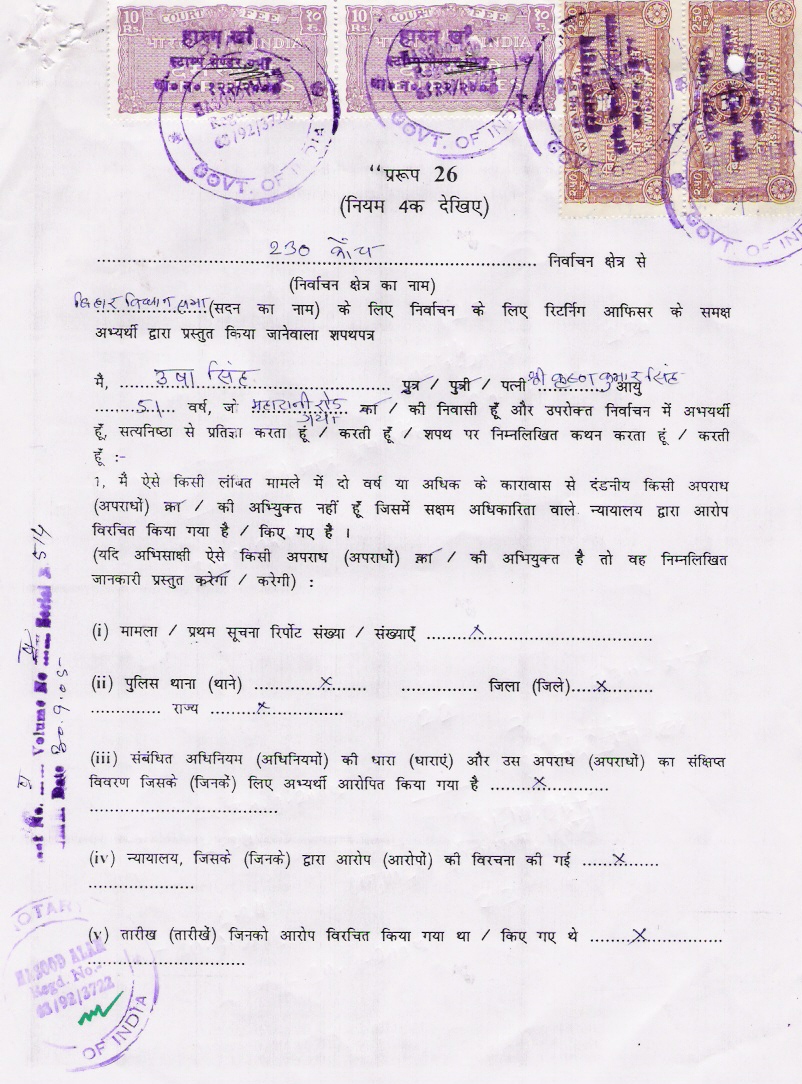 10 Rs
COURT FEE
१० रु.
INDIA
10 Rs
COURT FEE
१० रु.
INDIA
हारुन खाँ
हारुन खाँ
MASOOD ALAM
Regd. No.-
03/92/3722
GOVT. OF INDIA
GOVT. OF INDIA
GOVT. OF INDIA
“प्ररूप 26
(नियम 4क देखिए)
230 कोंच निर्वाचन क्षेत्र से
(निर्वाचन क्षेत्र का नाम)
बिहार विधान सभा (सदन का नाम) के लिए निर्वाचन के लिए रिटर्निग आफिसर के समक्ष
अभ्यर्थी द्वारा प्रस्तुत किया जानेवाला शपथपत्र
मै, उषा सिंह पुत्र / पुत्री / पत्नी श्री कृष्ण कुमार सिंह आयु
51 वर्ष, जो महारानी रोड गया का / की निवासी हूँ और उपरोक्त निर्वाचन में अभयर्थी
हूँ, सत्यनिष्ठा से प्रतिज्ञा करता हूं / करती हूँ / शपथ पर निम्नलिखित कथन करता हूं / करती
हूँ :-
1, मै ऐसे किसी लंबित मामले में दो वर्ष या अधिक के कारावास से दंडनीय किसी अपराध
(अपराधों) का / की अभियुक्त नहीं हूँ जिसमें सक्षम अधिकारिता वाले न्यायालय द्वारा आरोप
विरचित किया गया है / किए गए है ।
(यदि अभिसाक्षी ऐसे किसी अपराध (अपराधों) का / की अभियुक्त है तो वह निम्नलिखित
जानकारी प्रस्तुत करेगा / करेगी) :
(i) मामला / प्रथम सूचना रिर्पोट संख्या / संख्याएँ ........x........
(ii) पुलिस थाना (थाने) ........x........ ........ जिला (जिले)....x........
........ राज्य ........x........
(iii) संबंधित अधिनियम (अधिनियमों) की धारा (धाराएं) और उस अपराध (अपराधों) का संक्षिप्त
विवरण जिसके (जिनके) लिए अभ्यर्थी आरोपित किया गया है ........x........
........
(iv) न्यायालय, जिसके (जिनके) द्वारा आरोप (आरोपों) की विरचना की गई ......x......
........
(v) तारीख (तारीखें) जिनको आरोप विरचित किया गया था / किए गए थे ........x........
........
Volume No Serial 514
Date 30.9.05
NOTARY
MASOOD ALAM
Regd. No.-
03/92/3722
OF INDIA